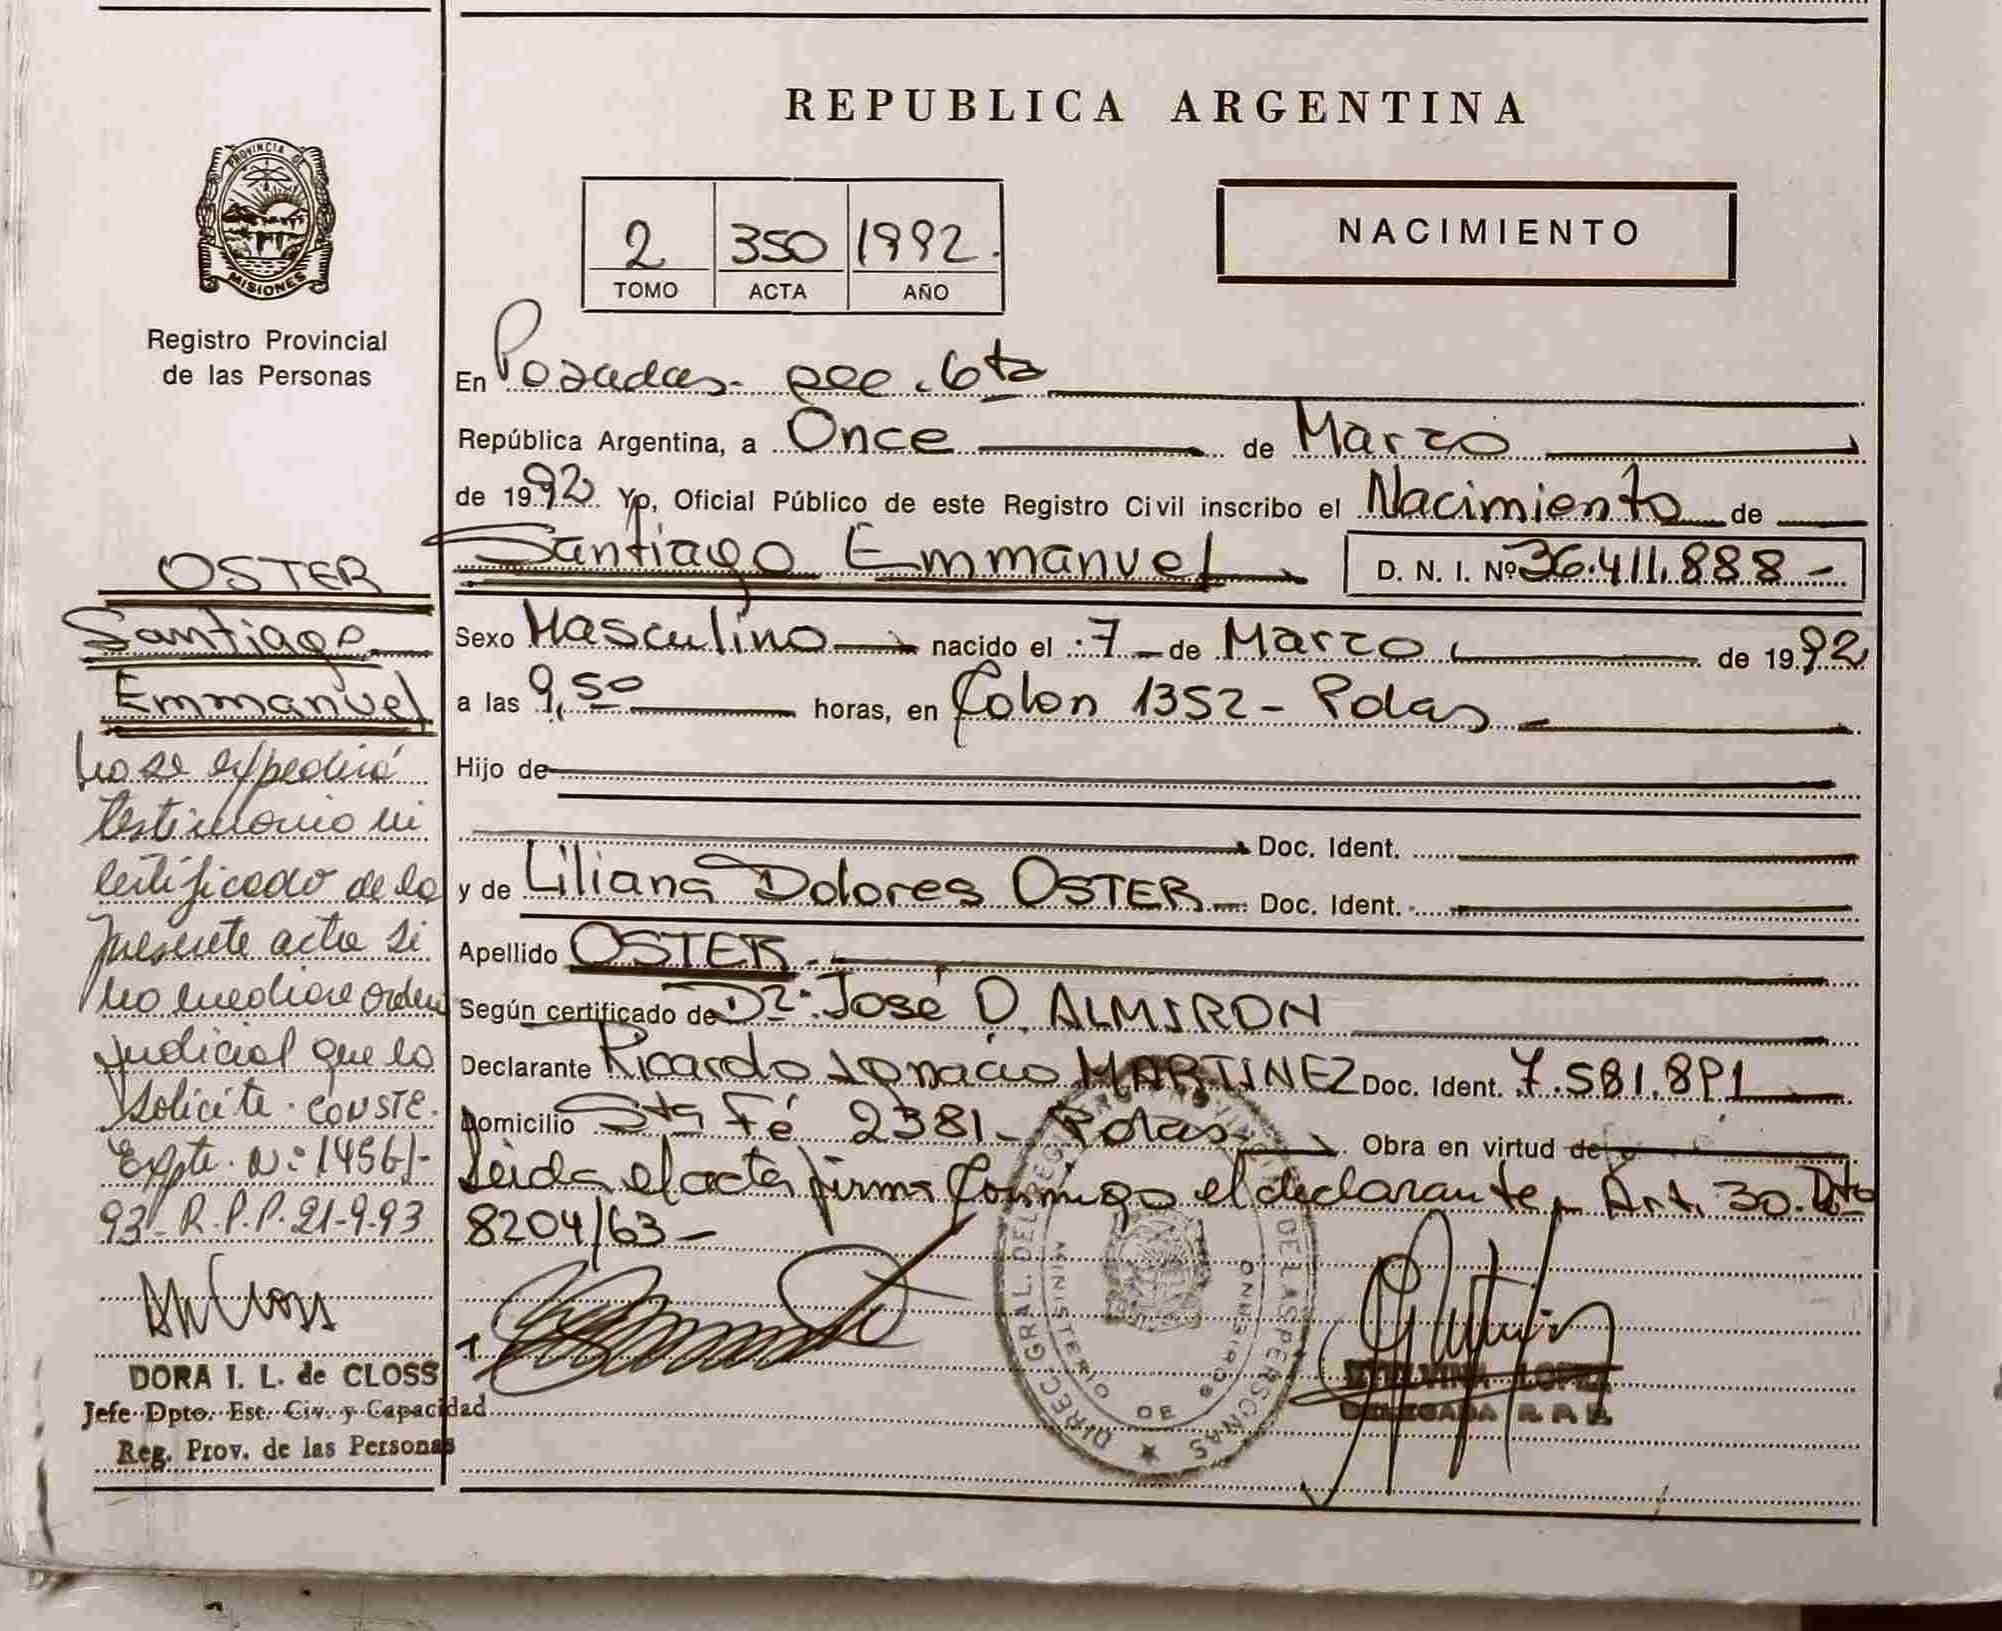 REPUBLICA ARGENTINA
NACIMIENTO
2 350 1992.
TOMO ACTA AÑO
PROVINCIA DE
MISIONES
Registro Provincial
de las Personas
En Posadas- 6ta
República Argentina, a Once de Marzo
de 1992 Yo, Oficial Público de este Registro Civil inscribo el Nacimiento de
Santiago Emmanuel D. N. I. Nº 36.411.888-
Sexo Masculino nacido el 7 de Marzo de 1992
a las 9,50 horas, en Colon 1352- Pdas
Hijo de
Doc. Ident.
y de Liliana Dolores OSTER Doc. Ident.
Apellido OSTER
Según certificado de Dr: José D. ALMIRON
Declarante Ricardo Ignacio MARTINEZ Doc. Ident. 7.581.891
Domicilio Sta Fé 2381- Pdas Obra en virtud de
Leida el acta firma conmigo el declarante Art. 30. Dto
8204/63-
OSTER
Santiago
Emmanuel
No se expedirá
testimonio ni
certificado de la
presente acta si
no mediare orden
judicial que lo
solicite. CONSTE.
Expte. Nº: 1456/-
93- R.P.P. 21-9-93
DORA I. L. de CLOSS
Jefe Dpto. Est. Civ. y Capacidad
Reg. Prov. de las Personas
DIREC. GRAL. DEL REG. PROVINCIAL DE LAS PERSONAS
MINISTERIO DE GOBIERNO
LOPEZ
DELEGADA R. P. P.